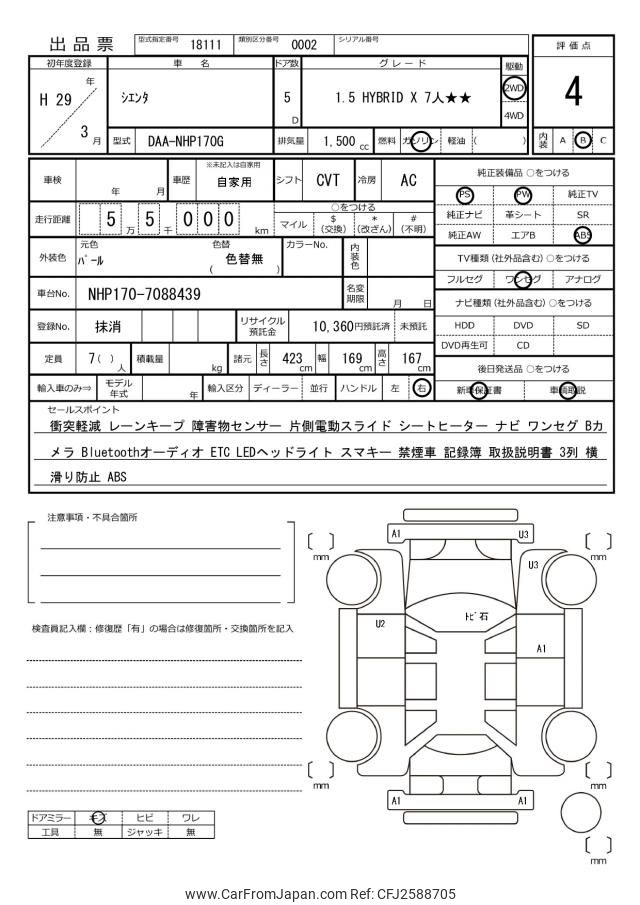 出品票 型式指定番号 18111 類別区分番号 0002 シリアル番号
評価点
4
内装 A B C
初年度登録 車名 ドア数 グレード 駆動
H 29 年 3 月
シエンタ 5 D 1.5 HYBRID X 7人★★ 2WD
4WD
型式 DAA-NHP170G 排気量 1,500 cc 燃料 ガソリン 軽油 ( )
車検 年 月 車歴 ※未記入は自家用 自家用 シフト CVT 冷房 AC
走行距離 5 万 5 千 0 0 0 km
○をつける
マイル $ (交換) * (改ざん) # (不明)
外装色 元色 パール 色替 ( 色替無 ) カラーNo. 内装色
車台No. NHP170-7088439 名変期限 月 日
登録No. 抹消 リサイクル預託金 10,360円預託済 未預託
定員 7 ( ) 人 積載量 kg 諸元 長さ 423 cm 幅 169 cm 高さ 167 cm
輸入車のみ⇒ モデル年式 年 輸入区分 ディーラー 並行 ハンドル 左 右
純正装備品 ○をつける
PS PW 純正TV
純正ナビ 革シート SR
純正AW エアB ABS
TV種類 (社外品含む) ○をつける
フルセグ ワンセグ アナログ
ナビ種類 (社外品含む) ○をつける
HDD DVD SD
DVD再生可 CD
後日発送品 ○をつける
新車保証書 車輌取説
セールスポイント
衝突軽減 レーンキープ 障害物センサー 片側電動スライド シートヒーター ナビ ワンセグ Bカ
メラ Bluetoothオーディオ ETC LEDヘッドライト スマキー 禁煙車 記録簿 取扱説明書 3列 横
滑り防止 ABS
注意事項・不具合箇所
検査員記入欄：修復歴「有」の場合は修復箇所・交換箇所を記入
A1 U3
mm mm
U3
U2 トビ石
A1
mm mm
A1 A1
mm
ドアミラー キズ ヒビ ワレ
工具 無 ジャッキ 無
www.CarFromJapan.com Ref: CFJ2588705